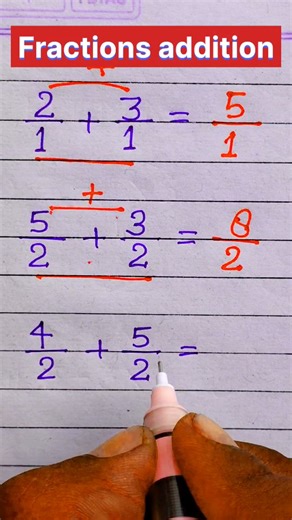 Fractions addition
+
2/1 + 3/1 = 5/1
+
5/2 + 3/2 = 8/2
4/2 + 5/2 =